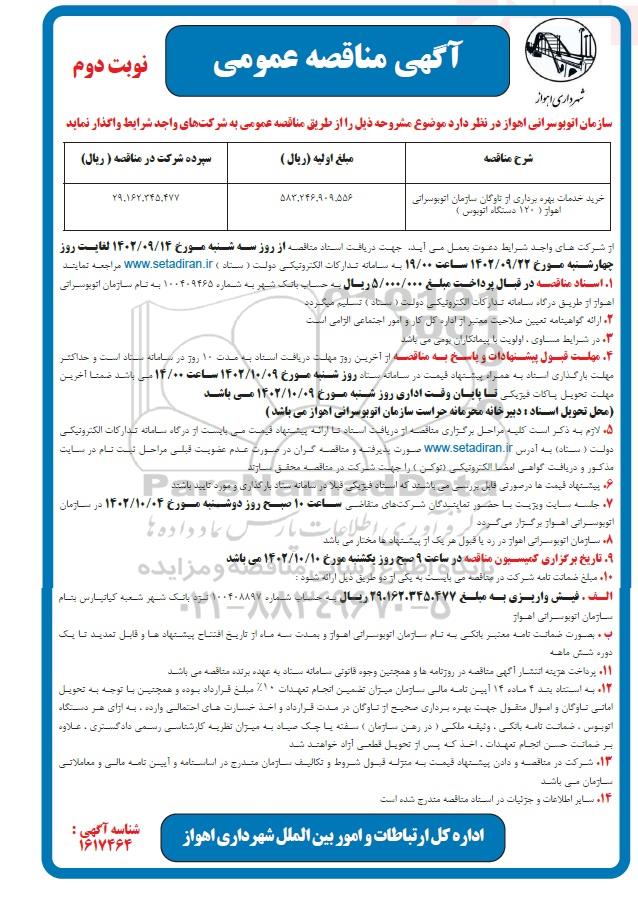 آگهی مناقصه عمومی
نوبت دوم
شهرداری اهواز
سازمان اتوبوسرانی اهواز در نظر دارد موضوع مشروحه ذیل را از طریق مناقصه عمومی به شرکت‌های واجد شرایط واگذار نماید
شرح مناقصه
مبلغ اولیه (ریال )
سپرده شرکت در مناقصه ( ریال)
خرید خدمات بهره برداری از ناوگان سازمان اتوبوسرانی
اهواز ( ۱۲۰ دستگاه اتوبوس )
۵۸۳.۲۴۶.۹۰۹.۵۵۶
۲۹.۱۶۲.۳۴۵.۴۷۷
از شرکت های واجد شرایط دعوت بعمل می آید، جهت دریافت اسناد مناقصه از روز سه شنبه مورخ ۱۴۰۲/۰۹/۱۴ لغایت روز
چهارشنبه مورخ ۱۴۰۲/۰۹/۲۲ ساعت ۱۹/۰۰ به سامانه تدارکات الکترونیکی دولت ( ستاد ) www.setadiran.ir مراجعه نمایند
۱. اسناد مناقصه در قبال پرداخت مبلغ ۵/۰۰۰/۰۰۰ ریال به حساب بانک شهر به شماره ۱۰۰۴۰۹۴۶۵ به نام سازمان اتوبوسرانی
اهواز از طریق درگاه سامانه تدارکات الکترونیکی دولت ( ستاد ) تسلیم میگردد
۲. ارائه گواهینامه تعیین صلاحیت معتبر از اداره کل کار و امور اجتماعی الزامی است
۳. در شرایط مساوی ، اولویت با پیمانکاران بومی می باشد
۴. مهلت قبول پیشنهادات و پاسخ به مناقصه از آخرین روز مهلت دریافت اسناد به مدت ۱۰ روز در سامانه ستاد است و حداکثر
مهلت بارگذاری اسناد به همراه پیشنهاد قیمت در سامانه ستاد روز شنبه مورخ ۱۴۰۲/۱۰/۰۹ ساعت ۱۴/۰۰ می باشد ضمنا آخرین
مهلت تحویل پاکات فیزیکی تا پایان وقت اداری روز شنبه مورخ ۱۴۰۲/۱۰/۰۹ می باشد
(محل تحویل اسناد : دبیرخانه محرمانه حراست سازمان اتوبوسرانی اهواز می باشد )
۵. لازم به ذکر است کلیه مراحل برگزاری مناقصه از دریافت اسناد تا ارائه پیشنهاد قیمت می بایست از درگاه سامانه تدارکات الکترونیکی
دولت ( ستاد) به آدرس www.setadiran.ir صورت پذیرفته و مناقصه گران در صورت عدم عضویت قبلی مراحل ثبت نام در سایت
مذکور و دریافت گواهی امضا الکترونیکی (توکن ) را جهت شرکت در مناقصه محقق سازند
۶. پیشنهاد قیمت ها درصورتی قابل بررسی می باشند که اسناد فیزیکی قبلا در سامانه ستاد بارگذاری و مورد تایید باشند
۷. جلسه سایت ویزیت با حضور نمایندگان شرکت‌های متقاضی ساعت ۱۰ صبح روز دوشنبه مورخ ۱۴۰۲/۱۰/۰۴ در سازمان
اتوبوسرانی اهواز برگزار می‌گردد
۸. سازمان اتوبوسرانی اهواز در رد یا قبول هر یک از پیشنهاد ها مختار می باشد
۹. تاریخ برگزاری کمیسیون مناقصه در ساعت ۹ صبح روز یکشنبه مورخ ۱۴۰۲/۱۰/۱۰ می باشد
۱۰. مبلغ ضمانت نامه شرکت در مناقصه می بایست به یکی از دو طریق ذیل ارائه شود :
الف . فیش واریزی به مبلغ ۲۹.۱۶۲.۳۴۵.۴۷۷ ریال به حساب شماره ۱۰۰۴۰۸۸۹۷ نزد بانک شهر شعبه کیانپارس بنام
سازمان اتوبوسرانی اهواز
ب . بصورت ضمانت نامه معتبر بانکی به نام سازمان اتوبوسرانی اهواز و بمدت سه ماه از تاریخ افتتاح پیشنهاد ها و قابل تمدید تا یک
دوره شش ماهه
۱۱. پرداخت هزینه انتشار آگهی مناقصه در روزنامه ها و همچنین وجوه قانونی سامانه ستاد به عهده برنده مناقصه می باشد
۱۲. به استناد بند ۴ ماده ۱۴ آیین نامه مالی سازمان میزان تضمین انجام تعهدات ۱۰٪ مبلغ قرارداد بوده و همچنین با توجه به تحویل
امانی ناوگان و اموال منقول جهت بهره برداری صحیح از ناوگان در مدت قرارداد و اخذ خسارت های احتمالی وارده ، به ازای هر دستگاه
اتوبوس ، ضمانت نامه بانکی ، وثیقه ملکی ( در رهن سازمان ) سفته یا چک صیاد به میزان نظریه کارشناسی رسمی دادگستری ، علاوه
بر ضمانت حسن انجام تعهدات ، اخذ که پس از تحویل قطعی آزاد خواهند شد
۱۳. شرکت در مناقصه و دادن پیشنهاد قیمت به منزله قبول شروط و تکالیف سازمان مندرج در اساسنامه و آیین نامه مالی و معاملاتی
سازمان می باشد
۱۴. سایر اطلاعات و جزئیات در اسناد مناقصه مندرج شده است
اداره کل ارتباطات و امور بین الملل شهرداری اهواز
شناسه آگهی :
۱۶۱۷۴۶۴